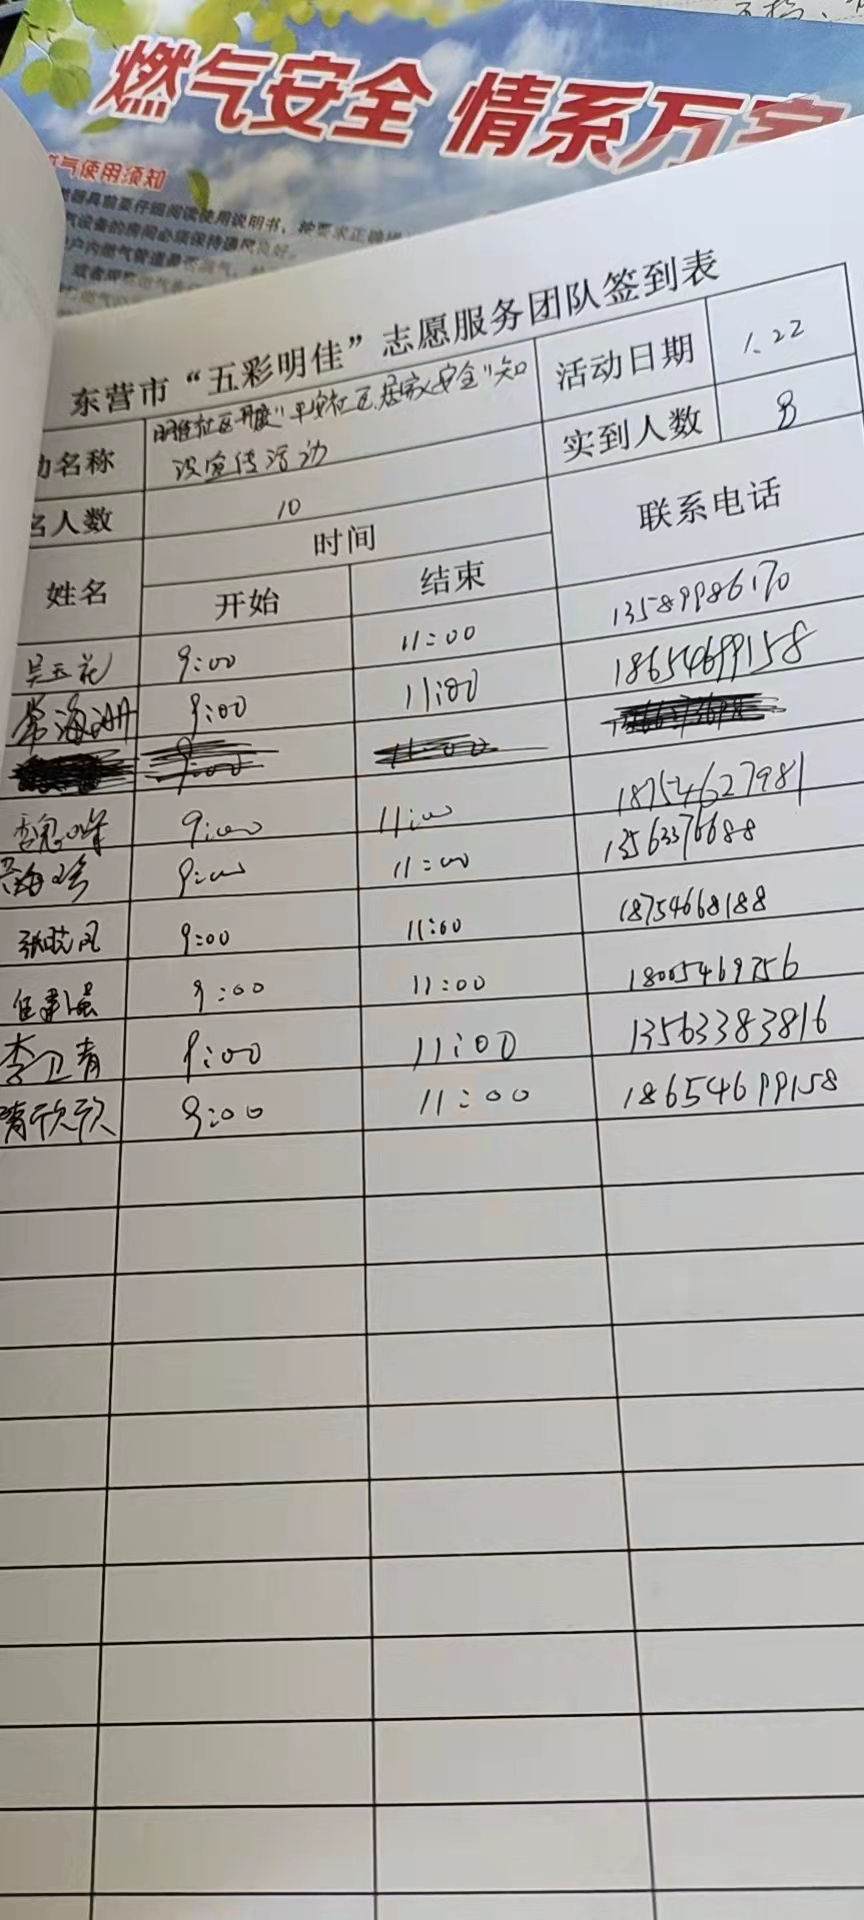 燃气安全 情系万家
气使用须知
东营市“五彩明佳”志愿服务团队签到表
动名称 明佳社区开展"平安社区,居家安全"知 活动日期 1.22
识宣传活动
名人数 10 实到人数 8
姓名 时间 联系电话
开始 结束
吴玉花 9:00 11:00 13589986170
常海洲 9:00 11:00 18654699158
9:00 11:00
魏峰 9:00 11:00 18754627981
海珍 9:00 11:00 13563376688
张晓凤 9:00 11:00 18754668188
任 9:00 11:00 18005469756
李卫青 9:00 11:00 13563383816
隋欣欣 9:00 11:00 18654699158